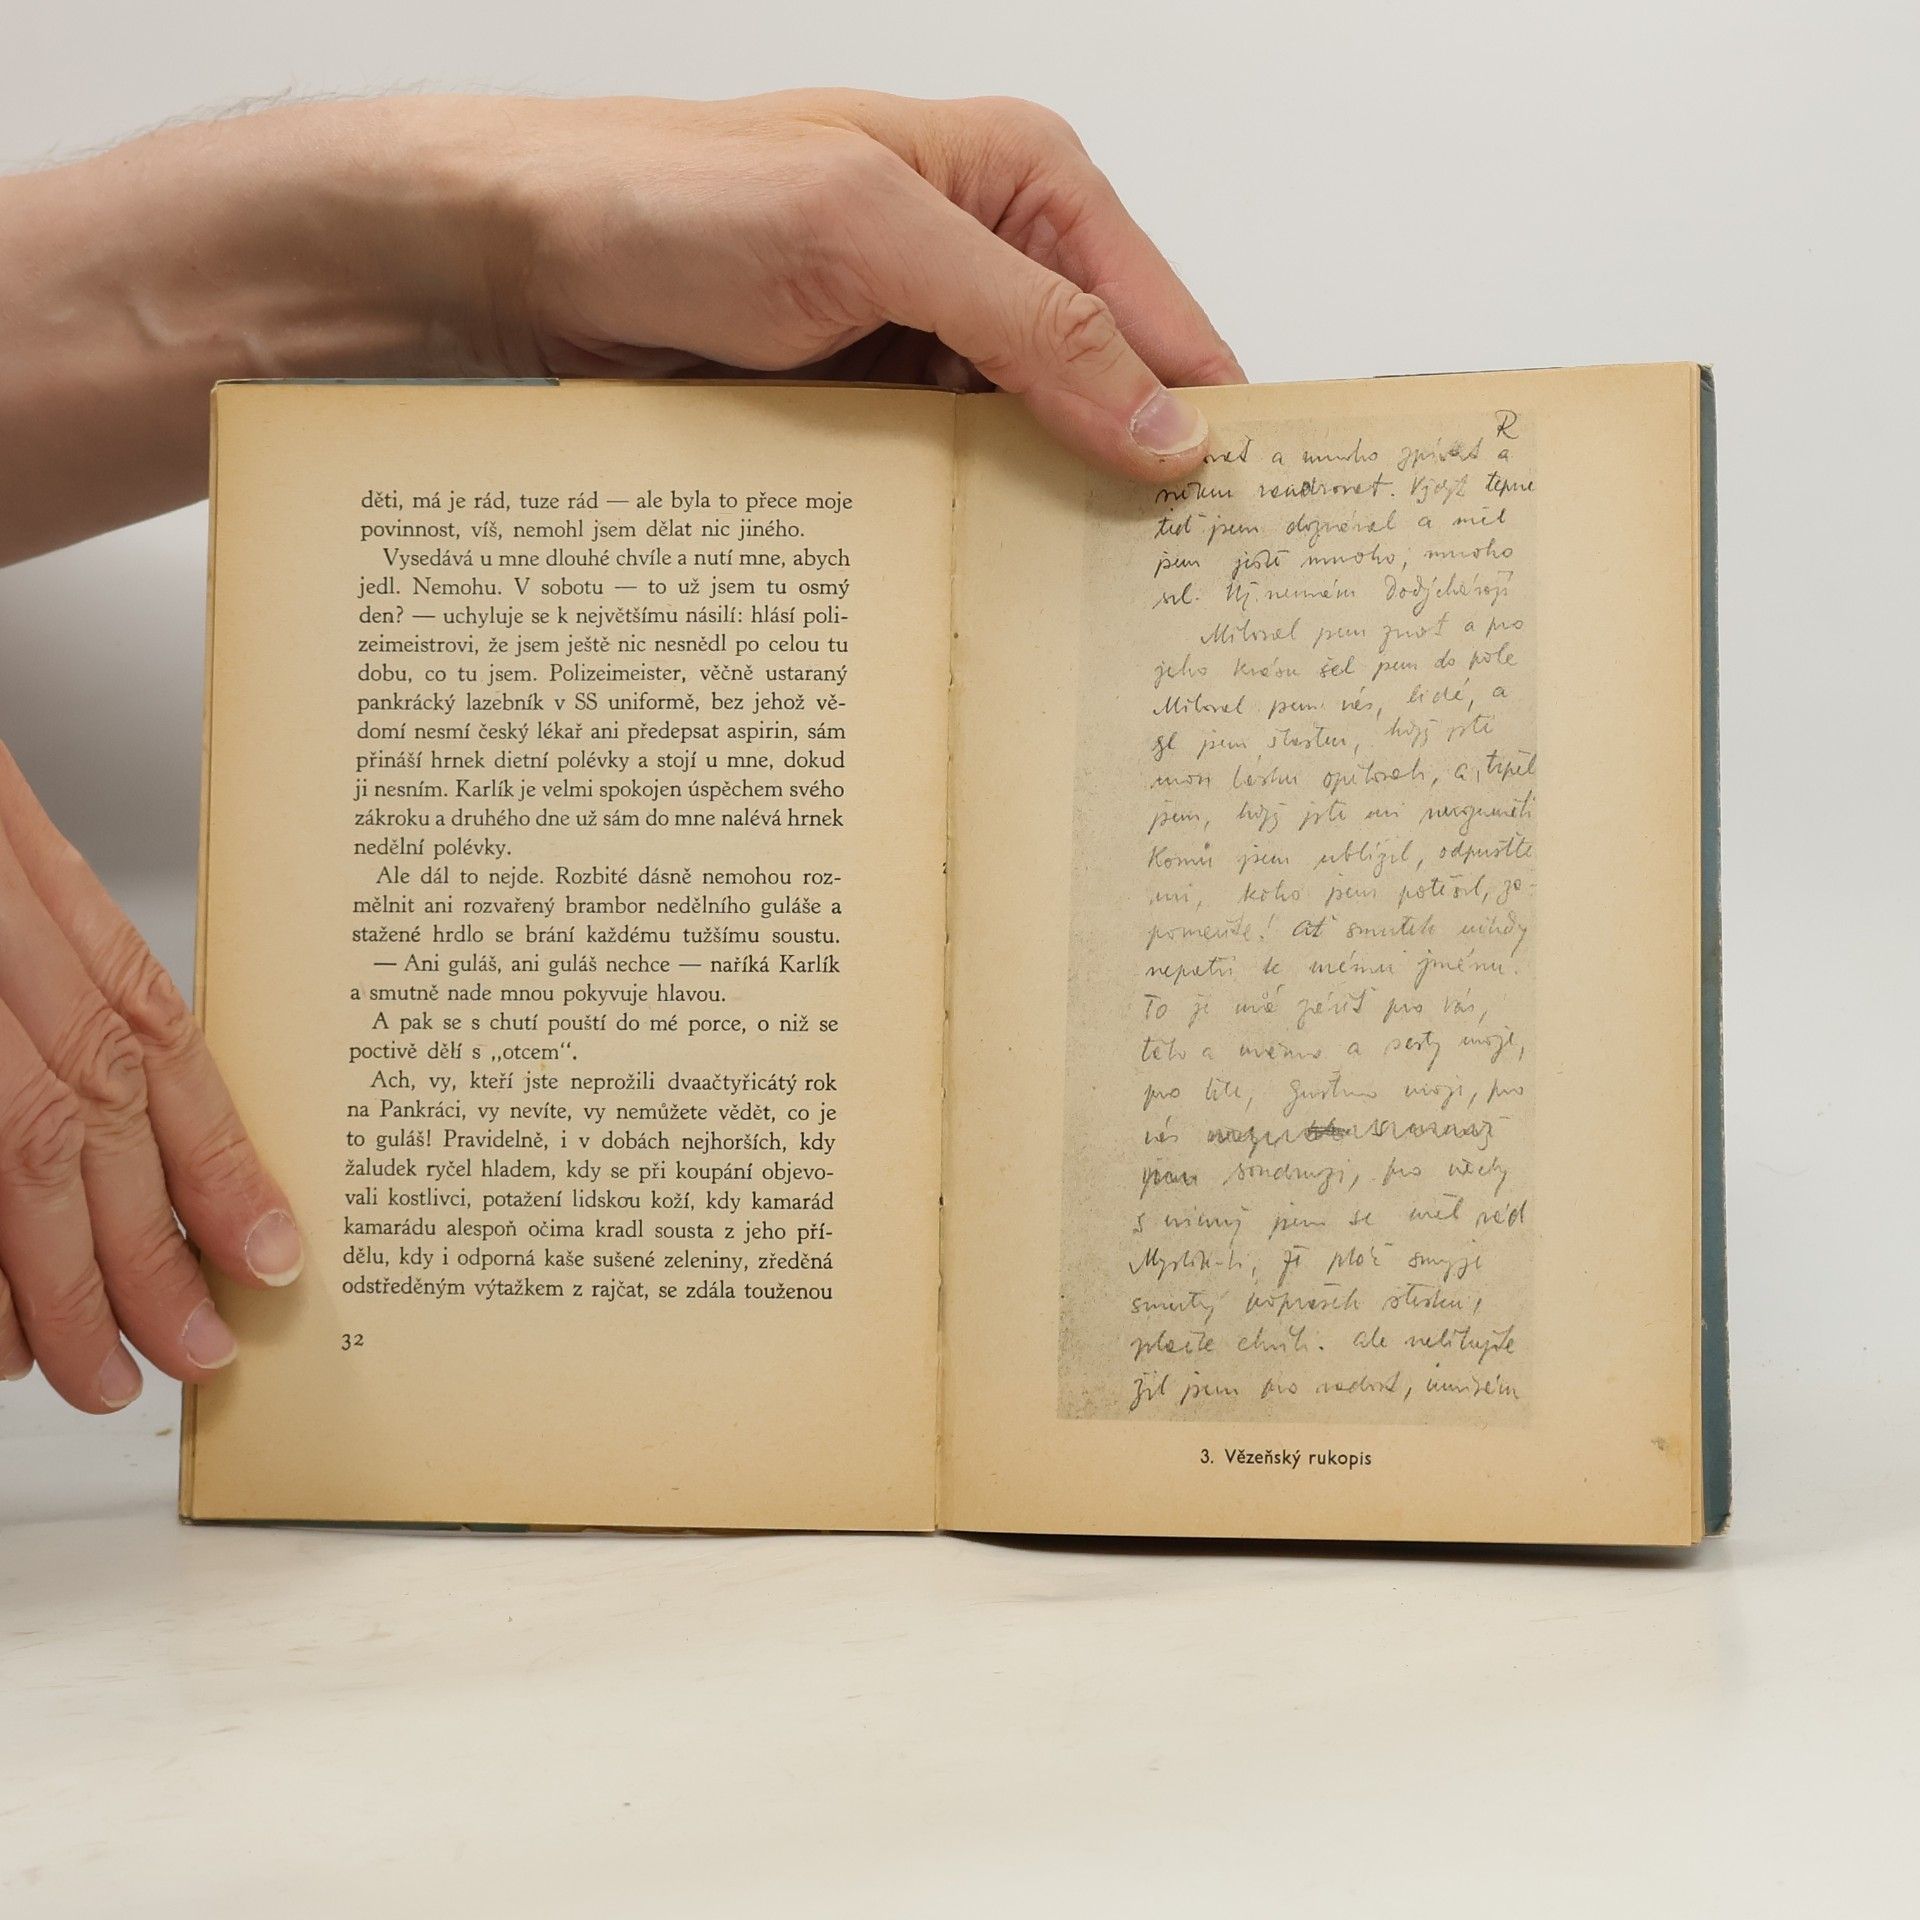 děti, má je rád, tuze rád — ale byla to přece moje
povinnost, víš, nemohl jsem dělat nic jiného.
Vysedává u mne dlouhé chvíle a nutí mne, abych
jedl. Nemohu. V sobotu — to už jsem tu osmý
den? — uchyluje se k největšímu násilí: hlásí poli-
zeimeistrovi, že jsem ještě nic nesnědl po celou tu
dobu, co tu jsem. Polizeimeister, věčně ustaraný
pankrácký lazebník v SS uniformě, bez jehož vě-
domí nesmí český lékař ani předepsat aspirin, sám
přináší hrnek dietní polévky a stojí u mne, dokud
ji nesním. Karlík je velmi spokojen úspěchem svého
zákroku a druhého dne už sám do mne nalévá hrnek
nedělní polévky.
Ale dál to nejde. Rozbité dásně nemohou roz-
mělnit ani rozvařený brambor nedělního guláše a
stažené hrdlo se brání každému tužšímu soustu.
— Ani guláš, ani guláš nechce — naříká Karlík
a smutně nade mnou pokyvuje hlavou.
A pak se s chutí pouští do mé porce, o niž se
poctivě dělí s „otcem“.
Ach, vy, kteří jste neprožili dvaačtyřicátý rok
na Pankráci, vy nevíte, vy nemůžete vědět, co je
to guláš! Pravidelně, i v dobách nejhorších, kdy
žaludek ryčel hladem, kdy se při koupání objevo-
vali kostlivci, potažení lidskou koží, kdy kamarád
kamarádu alespoň očima kradl sousta z jeho pří-
dělu, kdy i odporná kaše sušené zeleniny, zředěná
odstředěným výtažkem z rajčat, se zdála touženou
32
R
a mnoho zpívat a
světem vandrovat. Vždyť teprve
teď jsem dozrával a měl
jsem ještě mnoho, mnoho
sil.
Miloval jsem život a pro
jeho krásu šel jsem do pole
Miloval jsem vás, lidé, a
byl jsem šťasten, když jste
mou lásku opětovali, a trpěl
jsem, když jste mi nerozuměli
Komu jsem ublížil, odpusťte
mi, koho jsem potěšil, za-
pomeňte! Ať smutek nikdy
nepatří k mému jménu.
To je má závěť pro vás,
táto a mámo a sestry moje,
pro tebe, Gustino moje, pro
vás
soudruzi, pro všechny
s nimiž jsem se měl rád
Myslíte-li, že pláč smyje
smutný poprašek stesku,
plačte chvíli. Ale nelitujte
žil jsem pro radost, umírám
3. Vězeňský rukopis